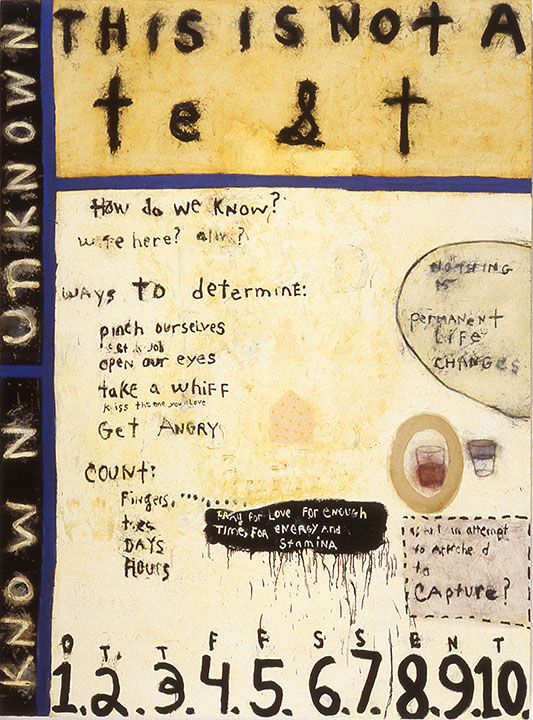 KNOWN UNKNOWN
THIS IS NOt A
te&t
How do we KNOW?
here?
WAYS TO determine:
pinch ourselves
open our eyes
take a WHIFF
kiss the one you love
Get ANGRY
COUNT:
Fingers,
toes
DAYS
HOURS
NOTHING
IS
PERMANENT
LIFE
CHANGES
PRAY for Love For enough
Time, FOR ENERGY And
StAMINA
attempt
to
to
CAPTURE?
O T. T F F S S E N T
1. 2. 3. 4. 5. 6. 7. 8. 9. 10.